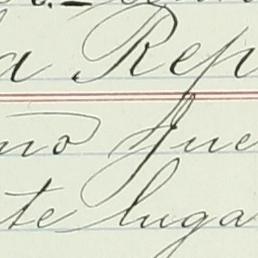 a Rep
no Jue
te luga